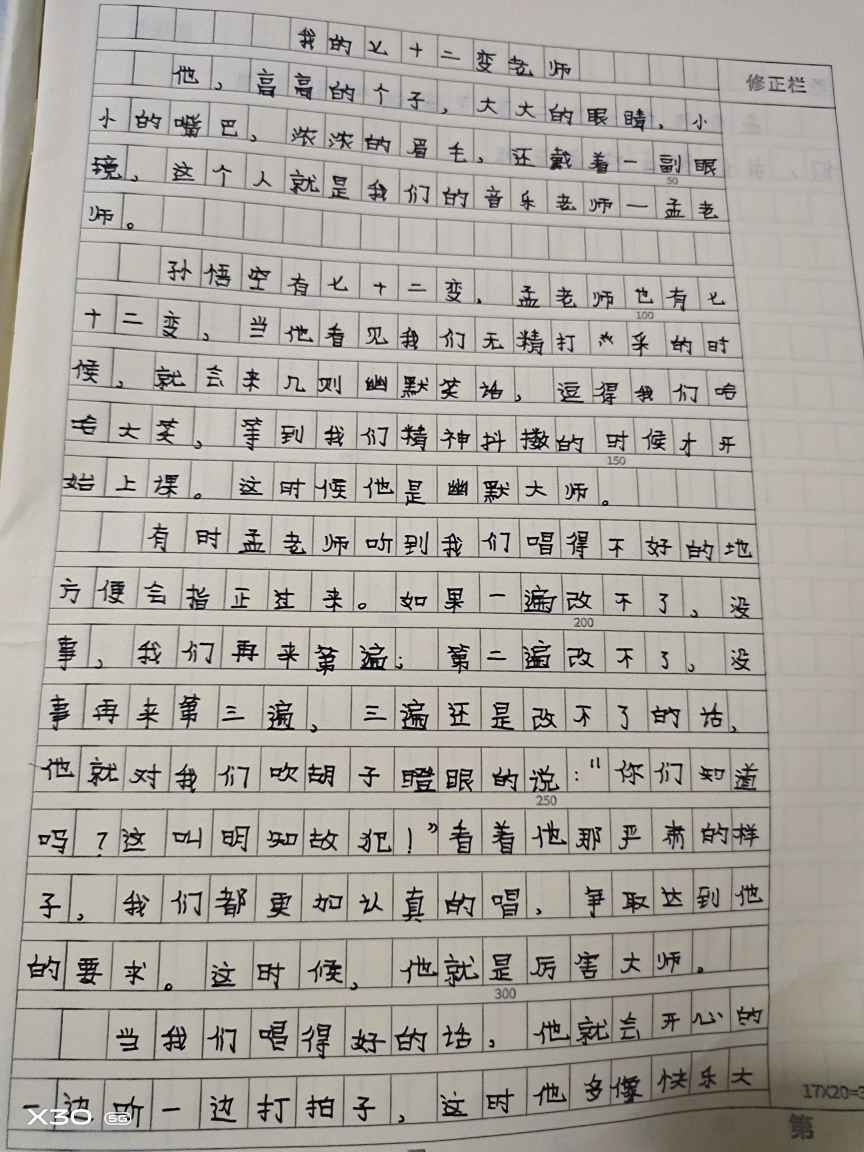 我的七十二变老师
修正栏
他，高高的个子，大大的眼睛，小
小的嘴巴，浓浓的眉毛，还戴着一副眼
50
镜，这个人就是我们的音乐老师一孟老
师。
孙悟空有七十二变，孟老师也有七
100
十二变，当他看见我们无精打采的时
候，就会来几则幽默笑话，逗得我们哈
哈大笑，等到我们精神抖擞的时候才开
150
始上课。这时候他是幽默大师。
有时孟老师听到我们唱得不好的地
方便会指正过来。如果一遍改不了，没
200
事，我们再来第遍；第二遍改不了，没
事再来第三遍，三遍还是改不了的话，
他就对我们吹胡子瞪眼的说："你们知道
250
吗？这叫明知故犯！”看着他那严肃的样
子，我们都更加认真的唱，争取达到他
的要求。这时候，他就是厉害大师。
300
当我们唱得好的话，他就会开心的
一边听一边打拍子，这时他多像快乐大
17X20=3
第
X30 5G